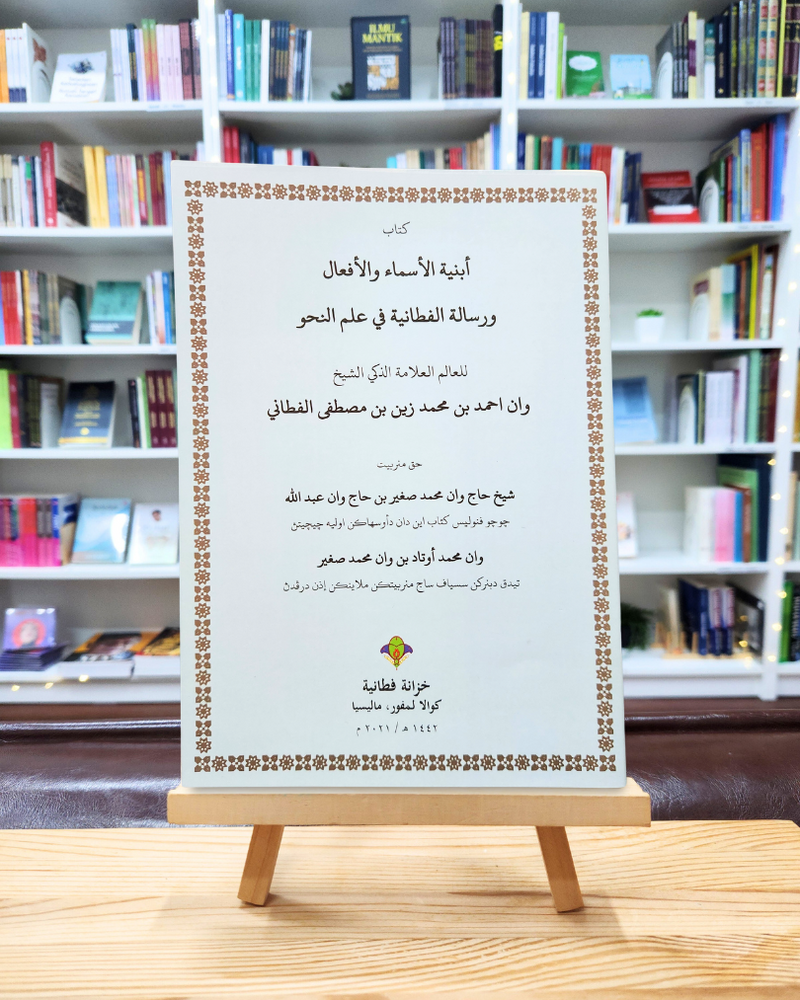 ILMU
MANTIK
كتاب
أبنية الأسماء والأفعال
ورسالة الفطانية في علم النحو
للعالم العلامة الذكي الشيخ
وان احمد بن محمد زين بن مصطفى الفطاني
حق منربيت
شيخ حاج وان محمد صغير بن حاج وان عبد الله
چوچو فنوليس كتاب اين دان دأوسهاكن اوليه چيچيتڽ
وان محمد أوتاد بن وان محمد صغير
تيدق دبنركن سسياف ساج منربيتكن ملاينكن إذن درڤدڽ
خزانة فطانية
كوالا لمفور، ماليسيا
١٤٤٢ هـ / ٢٠٢١ م